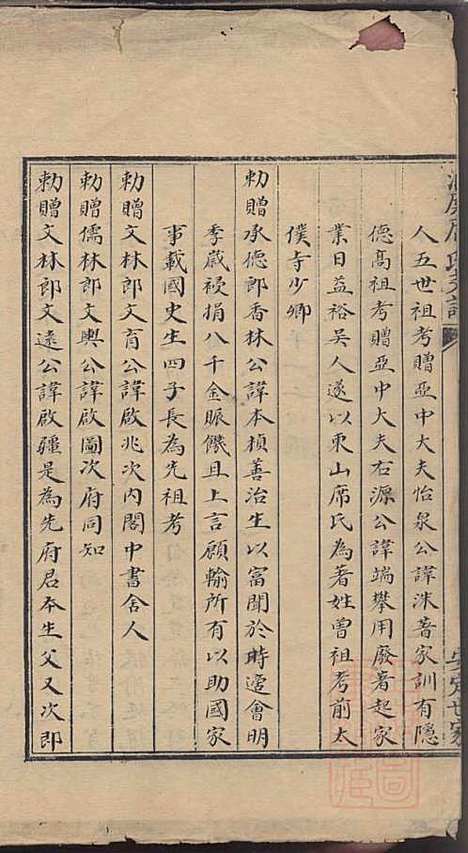 人五世祖考贈亞中大夫怡泉公諱洙著家訓有隱
德高祖考贈亞中大夫右源公諱端攀用廢著起家
業日益裕吳人遂以東山席氏為著姓曾祖考前太
僕寺少卿
勅贈承德郎香林公諱本楨善治生以富聞於時遘會明
季歲祲捐八千金賑饑且上言願輸所有以助國家
事載國史生四子長為先祖考
勅贈文林郎文育公諱啟兆次內閣中書舍人
勅贈儒林郎文輿公諱啟圖次府同知
勅贈文林郎文遠公諱啟疆是為先府君本生父又次郎
安定世家